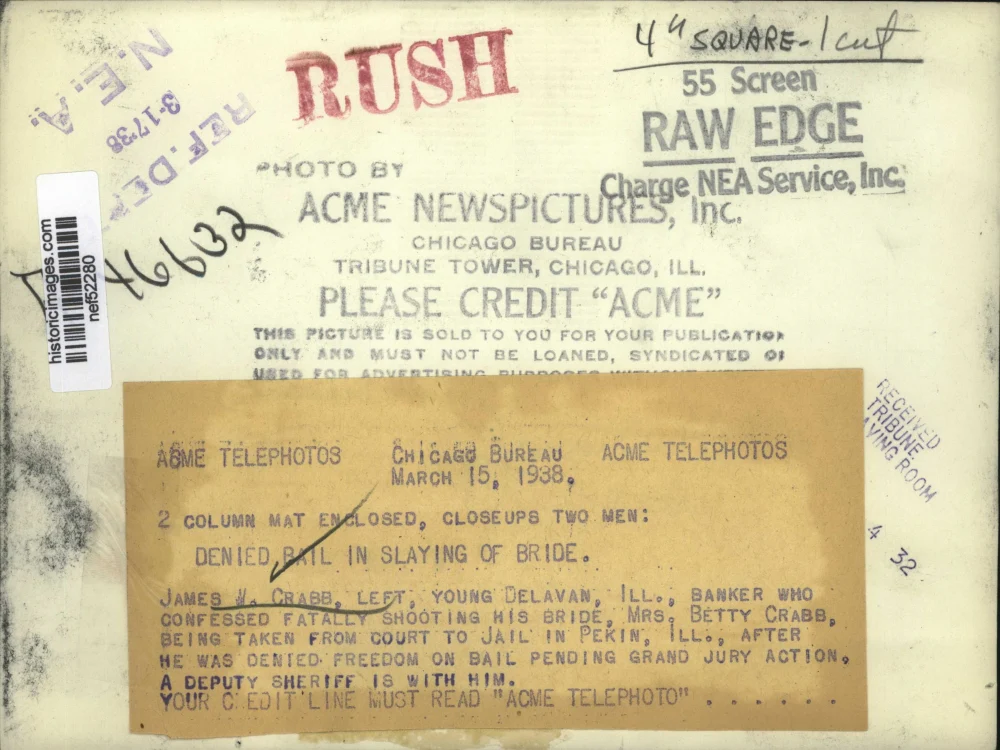 4" SQUARE - 1 cut
RUSH
55 Screen
RAW EDGE
Charge NEA Service, Inc.
N.E.A.
3-17'38
REF. DE
46632
historicimages.com
nef52280
PHOTO BY
ACME NEWSPICTURES, Inc.
CHICAGO BUREAU
TRIBUNE TOWER, CHICAGO, ILL.
PLEASE CREDIT "ACME"
THIS PICTURE IS SOLD TO YOU FOR YOUR PUBLICATION
ONLY AND MUST NOT BE LOANED, SYNDICATED OR
USED FOR ADVERTISING PURPOSES WITHOUT
RECEIVED
TRIBUNE
ROOM
4 32
ACME TELEPHOTOS CHICAGO BUREAU ACME TELEPHOTOS
MARCH 15, 1938,
2 COLUMN MAT ENCLOSED, CLOSEUPS TWO MEN:
DENIED BAIL IN SLAYING OF BRIDE.
JAMES W. CRABB, LEFT, YOUNG DELAVAN, ILL., BANKER WHO
CONFESSED FATALLY SHOOTING HIS BRIDE, MRS. BETTY CRABB,
BEING TAKEN FROM COURT TO JAIL IN PEKIN, ILL., AFTER
HE WAS DENIED FREEDOM ON BAIL PENDING GRAND JURY ACTION,
A DEPUTY SHERIFF IS WITH HIM.
YOUR C EDIT LINE MUST READ "ACME TELEPHOTO" . . . . . .